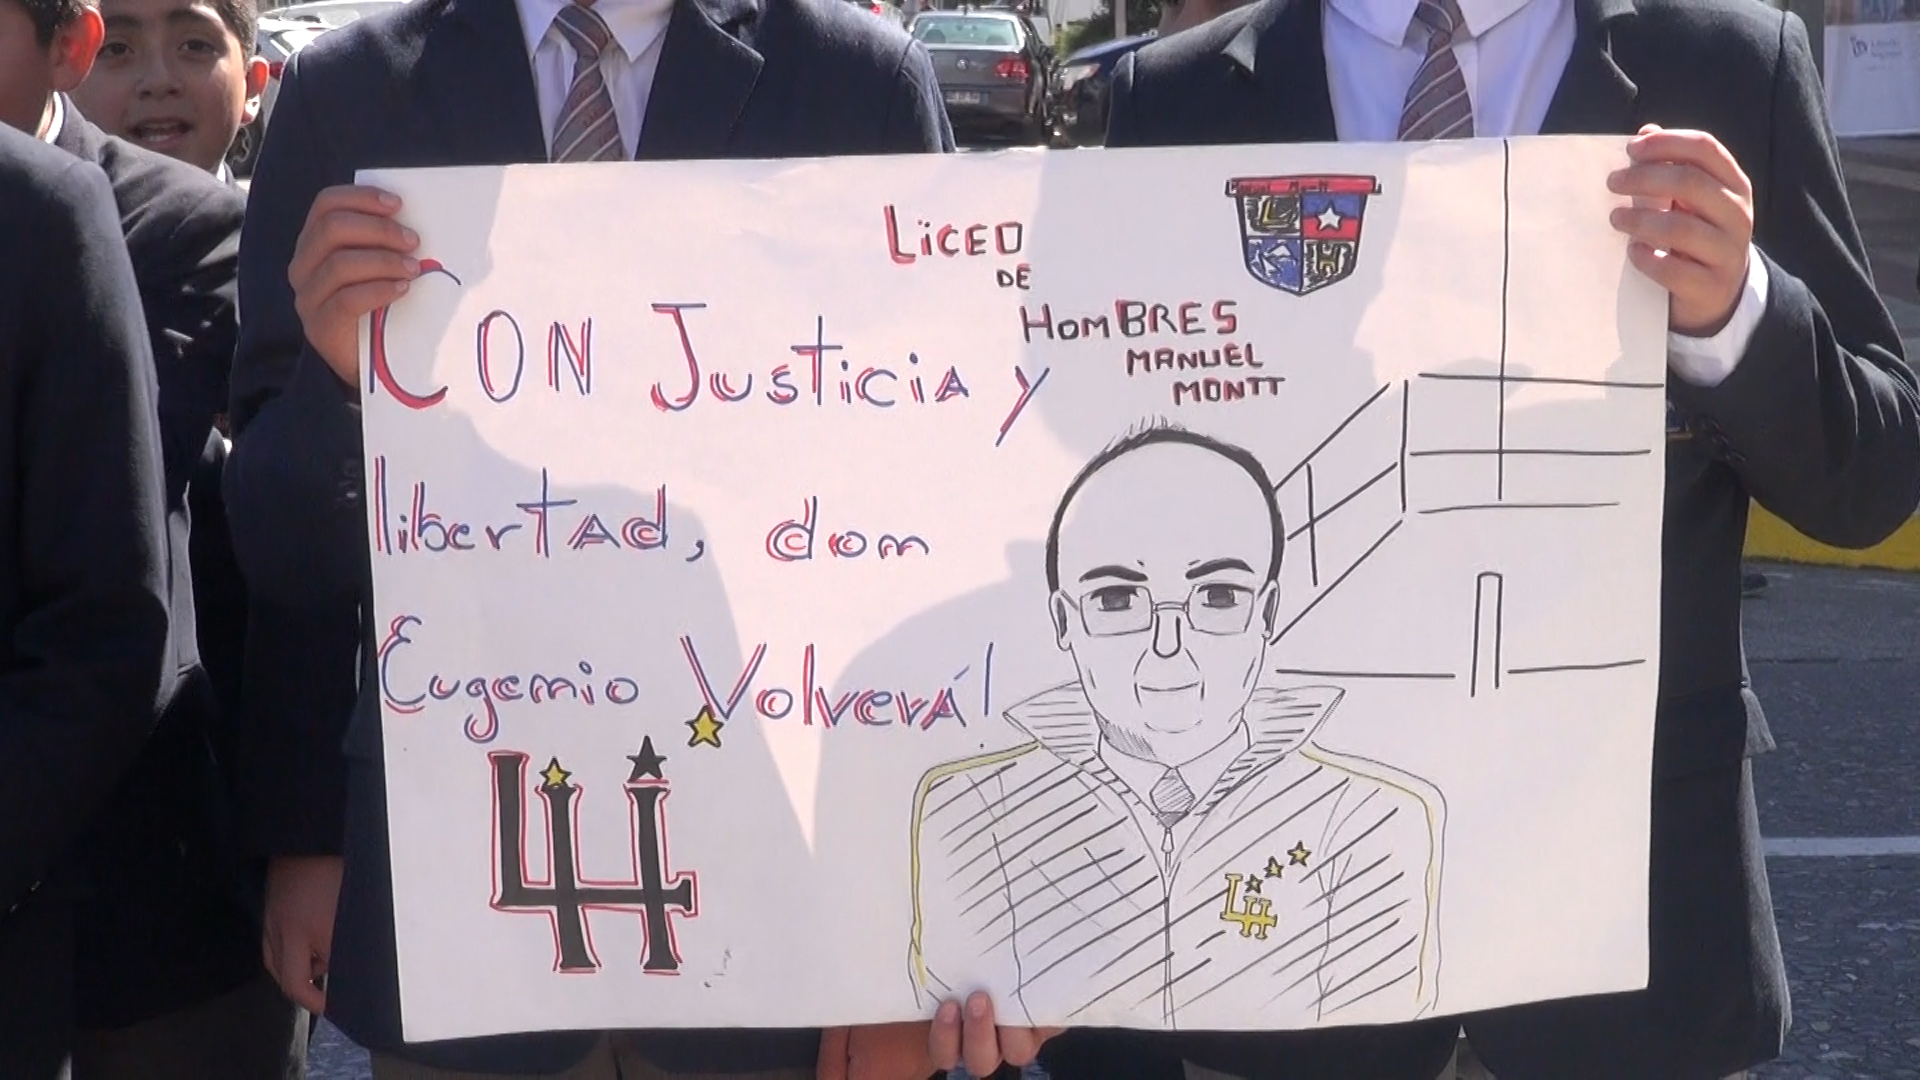 Liceo
DE
HomBRES
MANUEL
MONTT
Manuel Montt
LH
CON Justicia y
libertad, don
Eugenio Volverá!
LH
LH